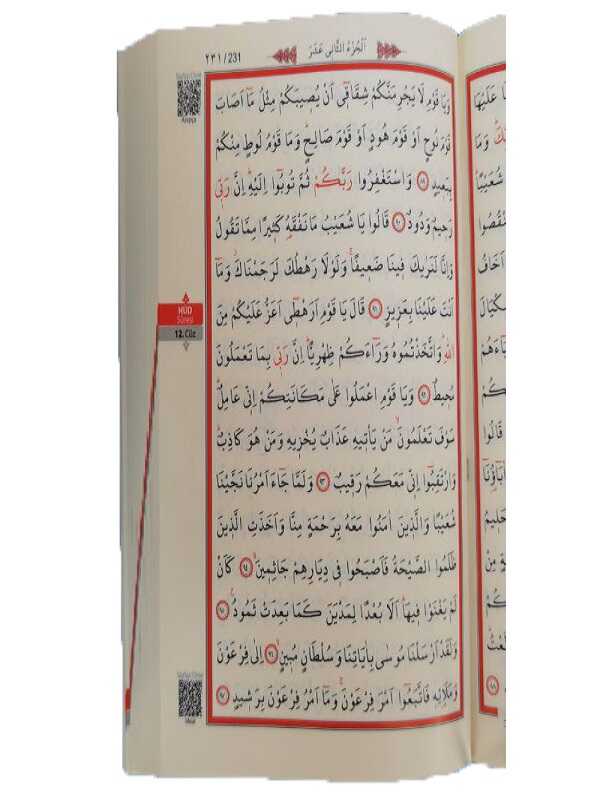 ٢٣١/231
اَلْجُزْءُ الثَّانِى عَشَرَ
وَيَا قَوْمِ لَا يَجْرِمَنَّكُمْ شِقَاقٖٓى اَنْ يُصٖيبَكُمْ مِثْلُ مَٓا اَصَابَ
قَوْمَ نُوحٍ اَوْ قَوْمَ هُودٍ اَوْ قَوْمَ صَالِحٍؕ وَمَا قَوْمُ لُوطٍ مِنْكُمْ
بِبَعٖيدٍ ﴿٨٩﴾ وَاسْتَغْفِرُوا رَبَّكُمْ ثُمَّ تُوبُٓوا اِلَيْهِؕ اِنَّ رَبّٖى
رَحٖيمٌ وَدُودٌ ﴿٩٠﴾ قَالُوا يَا شُعَيْبُ مَا نَفْقَهُ كَثٖيرًا مِمَّا تَقُولُ
وَاِنَّا لَنَرٰيكَ فٖينَا ضَعٖيفًاۚ وَلَوْلَا رَهْطُكَ لَرَجَمْنَاكَؗ وَمَٓا
اَنْتَ عَلَيْنَا بِعَزٖيزٍ ﴿٩١﴾ قَالَ يَا قَوْمِ اَرَهْطٖٓى اَعَزُّ عَلَيْكُمْ مِنَ
اللّٰهِؕ وَاتَّخَذْتُمُوهُ وَرَٓاءَكُمْ ظِهْرِيًّاؕ اِنَّ رَبّٖى بِمَا تَعْمَلُونَ
مُحٖيطٌ ﴿٩٢﴾ وَيَا قَوْمِ اعْمَلُوا عَلٰى مَكَانَتِكُمْ اِنّٖى عَامِلٌؕ
سَوْفَ تَعْلَمُونَۙ مَنْ يَأْتٖيهِ عَذَابٌ يُخْزٖيهِ وَمَنْ هُوَ كَاذِبٌؕ
وَارْتَقِبُٓوا اِنّٖى مَعَكُمْ رَقٖيبٌ ﴿٩٣﴾ وَلَمَّا جَٓاءَ اَمْرُنَا نَجَّيْنَا
شُعَيْبًا وَالَّذٖينَ اٰمَنُوا مَعَهُ بِرَحْمَةٍ مِنَّا وَاَخَذَتِ الَّذٖينَ
ظَلَمُوا الصَّيْحَةُ فَاَصْبَحُوا فٖى دِيَارِهِمْ جَاثِمٖينَۙ ﴿٩٤﴾ كَاَنْ
لَمْ يَغْنَوْا فٖيهَاؕ اَلَا بُعْدًا لِمَدْيَنَ كَمَا بَعِدَتْ ثَمُودُ ﴿٩٥﴾
وَلَقَدْ اَرْسَلْنَا مُوسٰى بِاٰيَاتِنَا وَسُلْطَانٍ مُبٖينٍۙ ﴿٩٦﴾ اِلٰى فِرْعَوْنَ
وَمَلَا۬ئِهٖ فَاتَّبَعُٓوا اَمْرَ فِرْعَوْنَۚ وَمَٓا اَمْرُ فِرْعَوْنَ بِرَشٖيدٍ ﴿٩٧﴾
HÛD
Sûresi
12. Cüz
Arapça
Meal